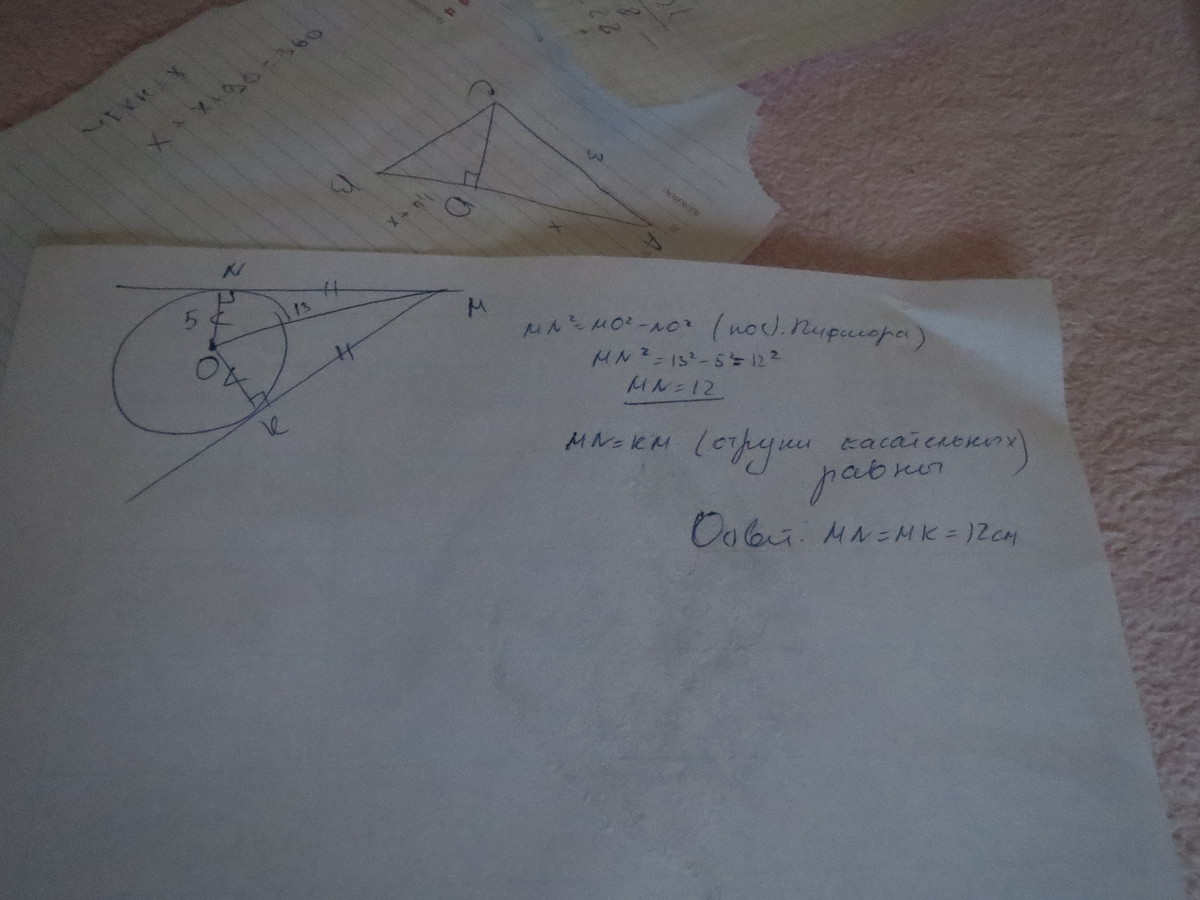 x + x + 90 = 360
C
3
B
D
1,4+x
x
A
N
M
5
13
O
K
MN² = MO² - NO² (по т. Пифагора)
MN² = 13² - 5² = 12²
MN = 12
MN = KM (отрезки касательных)
равны
Ответ: MN = MK = 12 см